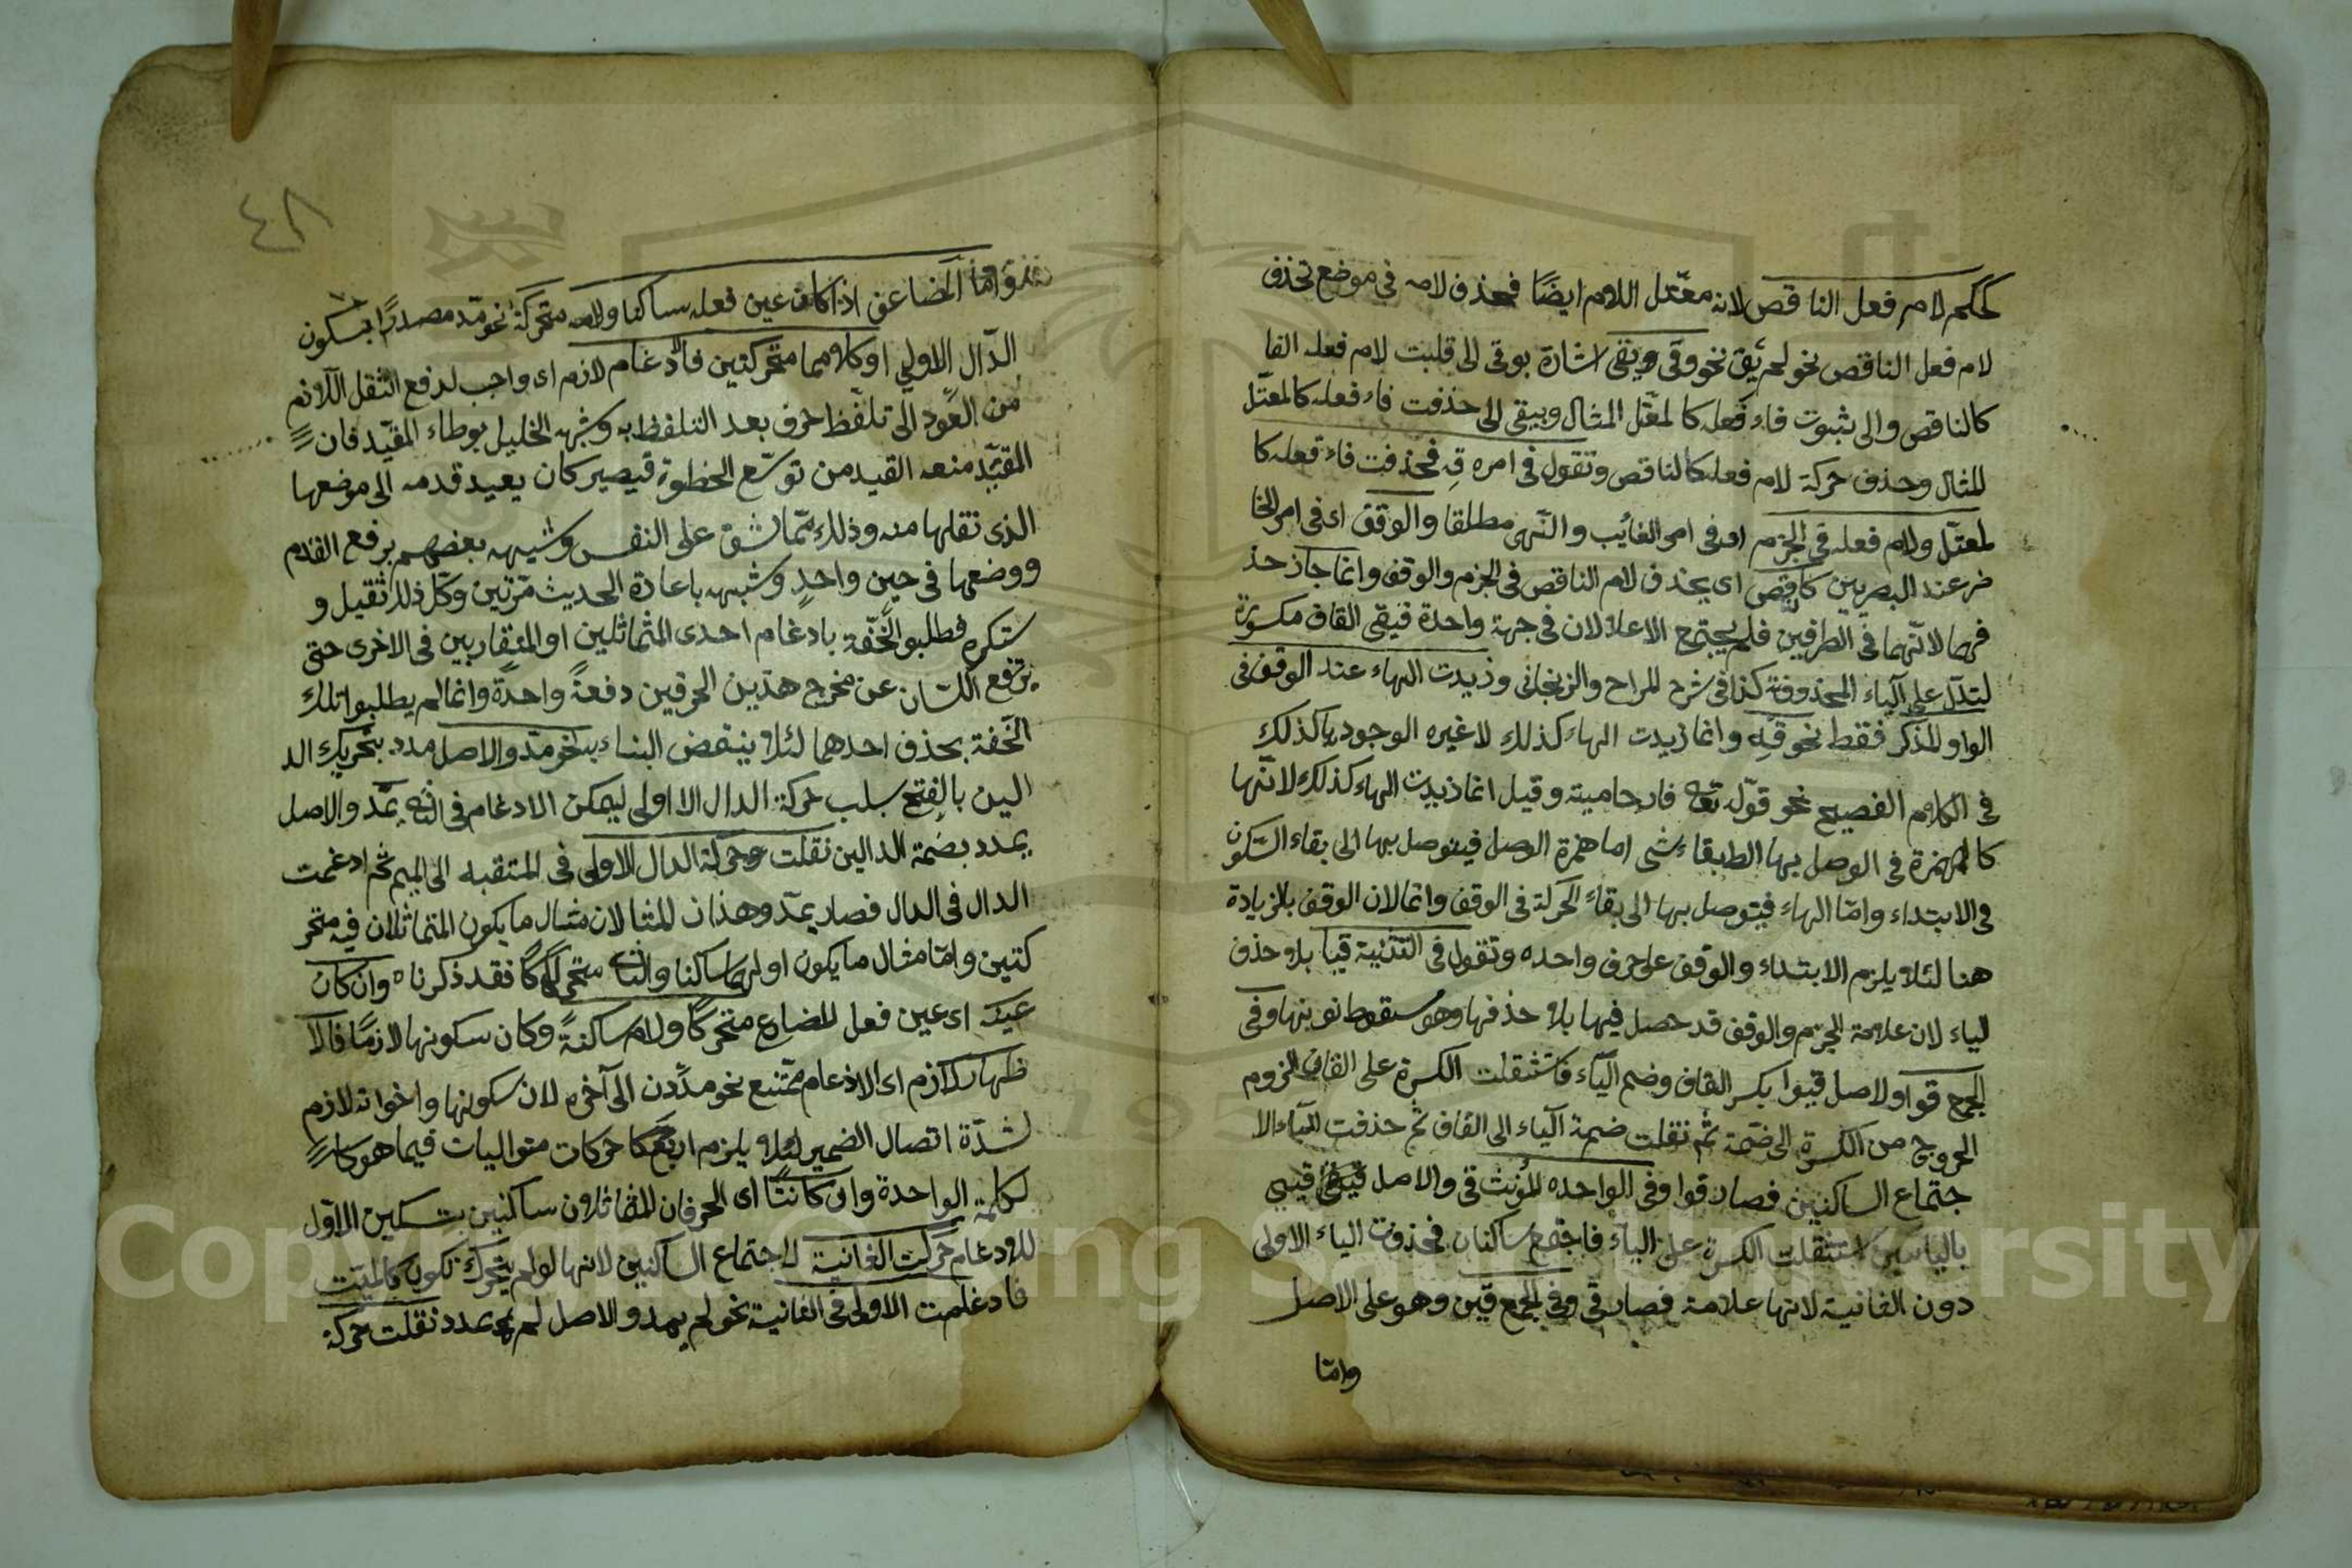 كحكم لام فعل الناقص لانه معتل اللام ايضًا فحذف لامه فى موضع تحذف
لام فعل الناقص نحو لم يق نحو وقى ويقى اشارة بوقى الى قلبت لام فعله الفا
كالناقص والى ثبوت فاء فعله كالمعتل المثال وبيقى الى حذفت فاء فعله كالمعتل
المثال وحذف حركة لام فعله كالناقص وتقول فى امره قِ فحذفت فاء فعله كا
لمعتل ولام فعله فى الجزم اى فى امر الغائب والنهى مطلقا والوقف اى فى امر الحا
ضر عند البصريين كناقص اى يحذف لام الناقص فى الجزم والوقف وانما جاز حذ
فهما لانهما فى الطرفين فلم يجتمع الاعلالان فى جهة واحدة فيقى القاف مكسورة
لتدل على الياء المحذوفة كذا فى شرح المراح والزنجانى وزيدت الهاء عند الوقف فى
الواو المذكر فقط نحو قِه وانما زيدت الهاء كذلك لا غيره الوجود ها كذلك
فى الكلام الفصيح نحو قوله تعه نار حامية وقيل انما زيدت الهاء كذلك لانها
كالهمزة فى الوصل بها الطبقاء شى اما همزة الوصل فيتوصل بها الى بقاء السكون
فى الابتداء واما الهاء فيتوصل بها الى بقاء الحركة فى الوقف وانما لان الوقف بالزيادة
هنا لئلا يلزم الابتداء والوقف على حرف واحده وتقول فى التثنية قيا بلا حذف
الياء لان علامة الجزم والوقف قد حصل فيها بلا حذفها وهو سقوط نونها وفى
الجمع قوا والاصل قيوا بكسر القاف وضم الياء فاستثقلت الكسرة على القاف لزوم
الخروج من الكسرة الى ضمة ثم نقلت ضمة الياء الى القاف ثم حذفت الياء لا
جتماع الساكنين فصار قوا وفى الواحده المؤنث قى والاصل قيى
باليائين استثقلت الكسرة على الياء فاجتمع ساكنان فحذفت الياء الاولى
دون الثانية لانها علامة فصار قى وفى الجمع قين وهو على الاصل
واما
٤٨
واما المضاعف اذا كان عين فعله ساكنا ولامه متحركة نحو مدّ مصدرًا بسكون
الدال الاولى او كلاهما متحركتين فالادغام لازم اى واجب لدفع الثقل اللازم
من العود الى تلفظ حرف بعد التلفظ به وشبهه الخليل بوطاء المقيد فان
المقيد منعه القيد من توسع الخطوة فيصير كان يعيد قدمه الى موضعها
الذى نقلها منه وذلك مما شق على النفس وشبهه بعضهم برفع القدم
ووضعها فى حين واحد وشبهه باعادة الحديث مرتين وكل ذلك ثقيل و
ستكره فطلبوا الخفة بادغام احدى المثماثلين او المتقاربين فى الاخرى حتى
يرتفع اللسان عن مخرج هذين الحرفين دفعةً واحدةً وانما لم يطلبوا تلك
الخفة بحذف احدهما لئلا ينتقض البناء نحو مدّ والاصل مدد بتحريك الد
الين بالفتح سلب حركة الدال الا اولى ليمكن الادغام فى الثه يمدّ والاصل
يمدد بضمة الدالين نقلت حركة الدال الاولى فى المتقبه الى الميم ثم ادغمت
الدال فى الدال فصار يمدّ وهذان المثالان مثال ما يكون المتماثلان فيه متحر
كتين واما مثال ما يكون اولهما ساكنا والثاه متحركًا فقد ذكرناه وان كان
عينه اى عين فعل المضارع متحركًا ولامه ساكنةً وكان سكونها لازمًا فالا
ظهار لازم اى الادغام ممتنع نحو مددن الى آخره لان سكونها واخواته لازم
لشدة اتصال الضمير لئلا يلزم اربع حركات متواليات فيما هو كا
لكلمة الواحدة وان كانتا اى الحرفان المتماثلان ساكنين بتسكين الاول
للادغام حركت الثانية لاجتماع الساكنين لانها لو لم يتحرك تكون كالميت
فادغمت الاولى فى الثانية نحو لم يمد والاصل لم يمدد نقلت حركة